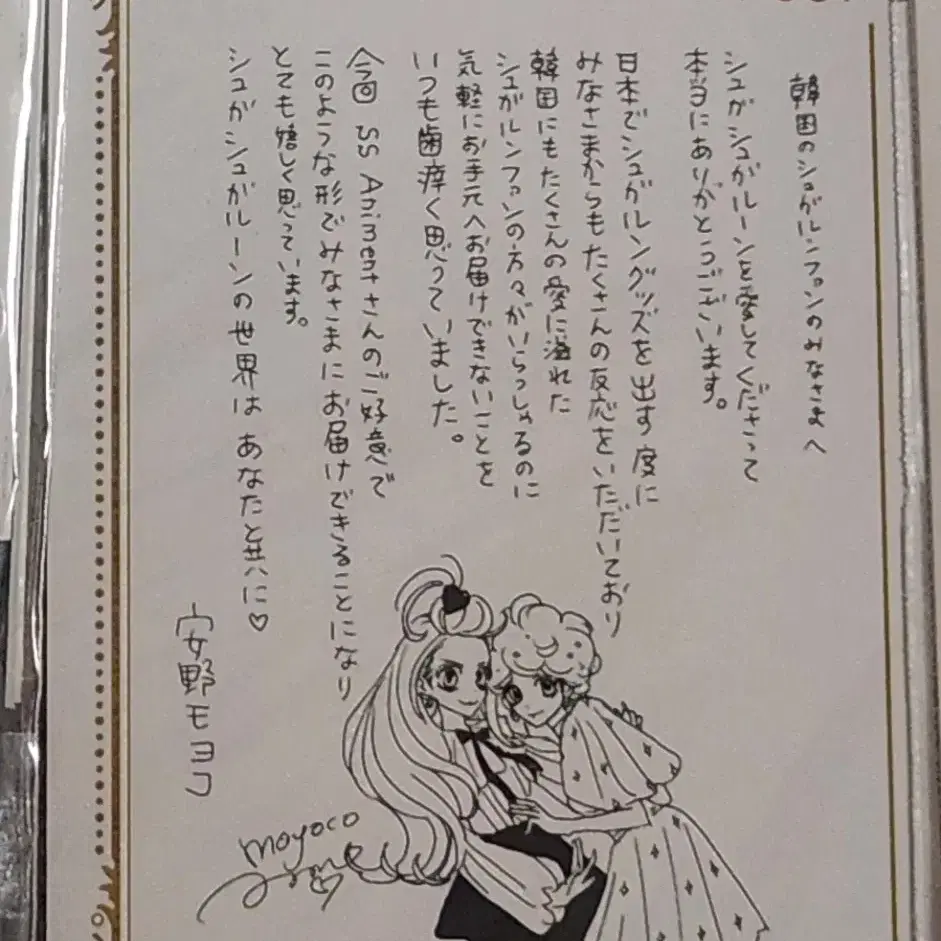 韓国のシュガルンファンのみなさまへ
シュガシュガルーンを愛してくださって
本当にありがとうございます。
日本でシュガルングッズを出す度に
みなさまからもたくさんの反応をいただいており
韓国にもたくさんの愛に溢れた
シュガルンファンの方々がいらっしゃるのに
気軽にお手元へお届けできないことを
いつも歯痒く思っていました。
今回 SS Animentさんのご好意で
このような形でみなさまにお届けできることになり
とても嬉しく思っています。
シュガシュガルーンの世界は あなたと共に♡
安野モヨコ
moyoco